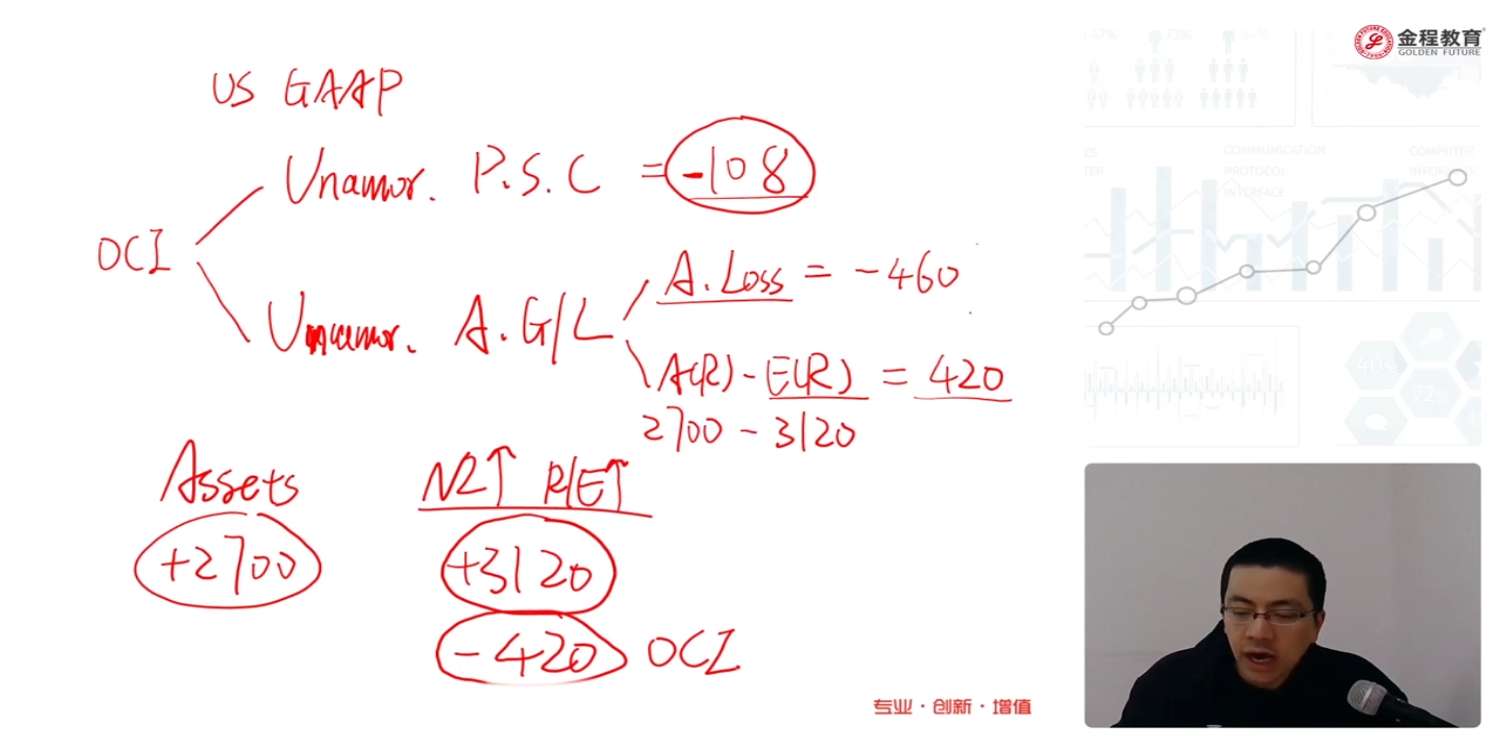 金程教育
GOLDEN FUTURE
US GAAP
Unamor. P.S.C = -108
OCI
A. Loss = -460
Unamor. A. G/L
A(R) - E(R) = 420
2700 - 3120
Assets
NI↑ R/E↑
+2700
+3120
-420 OCI
专业·创新·增值
COMMUNICATION
PROTOCOL
INTERFACE